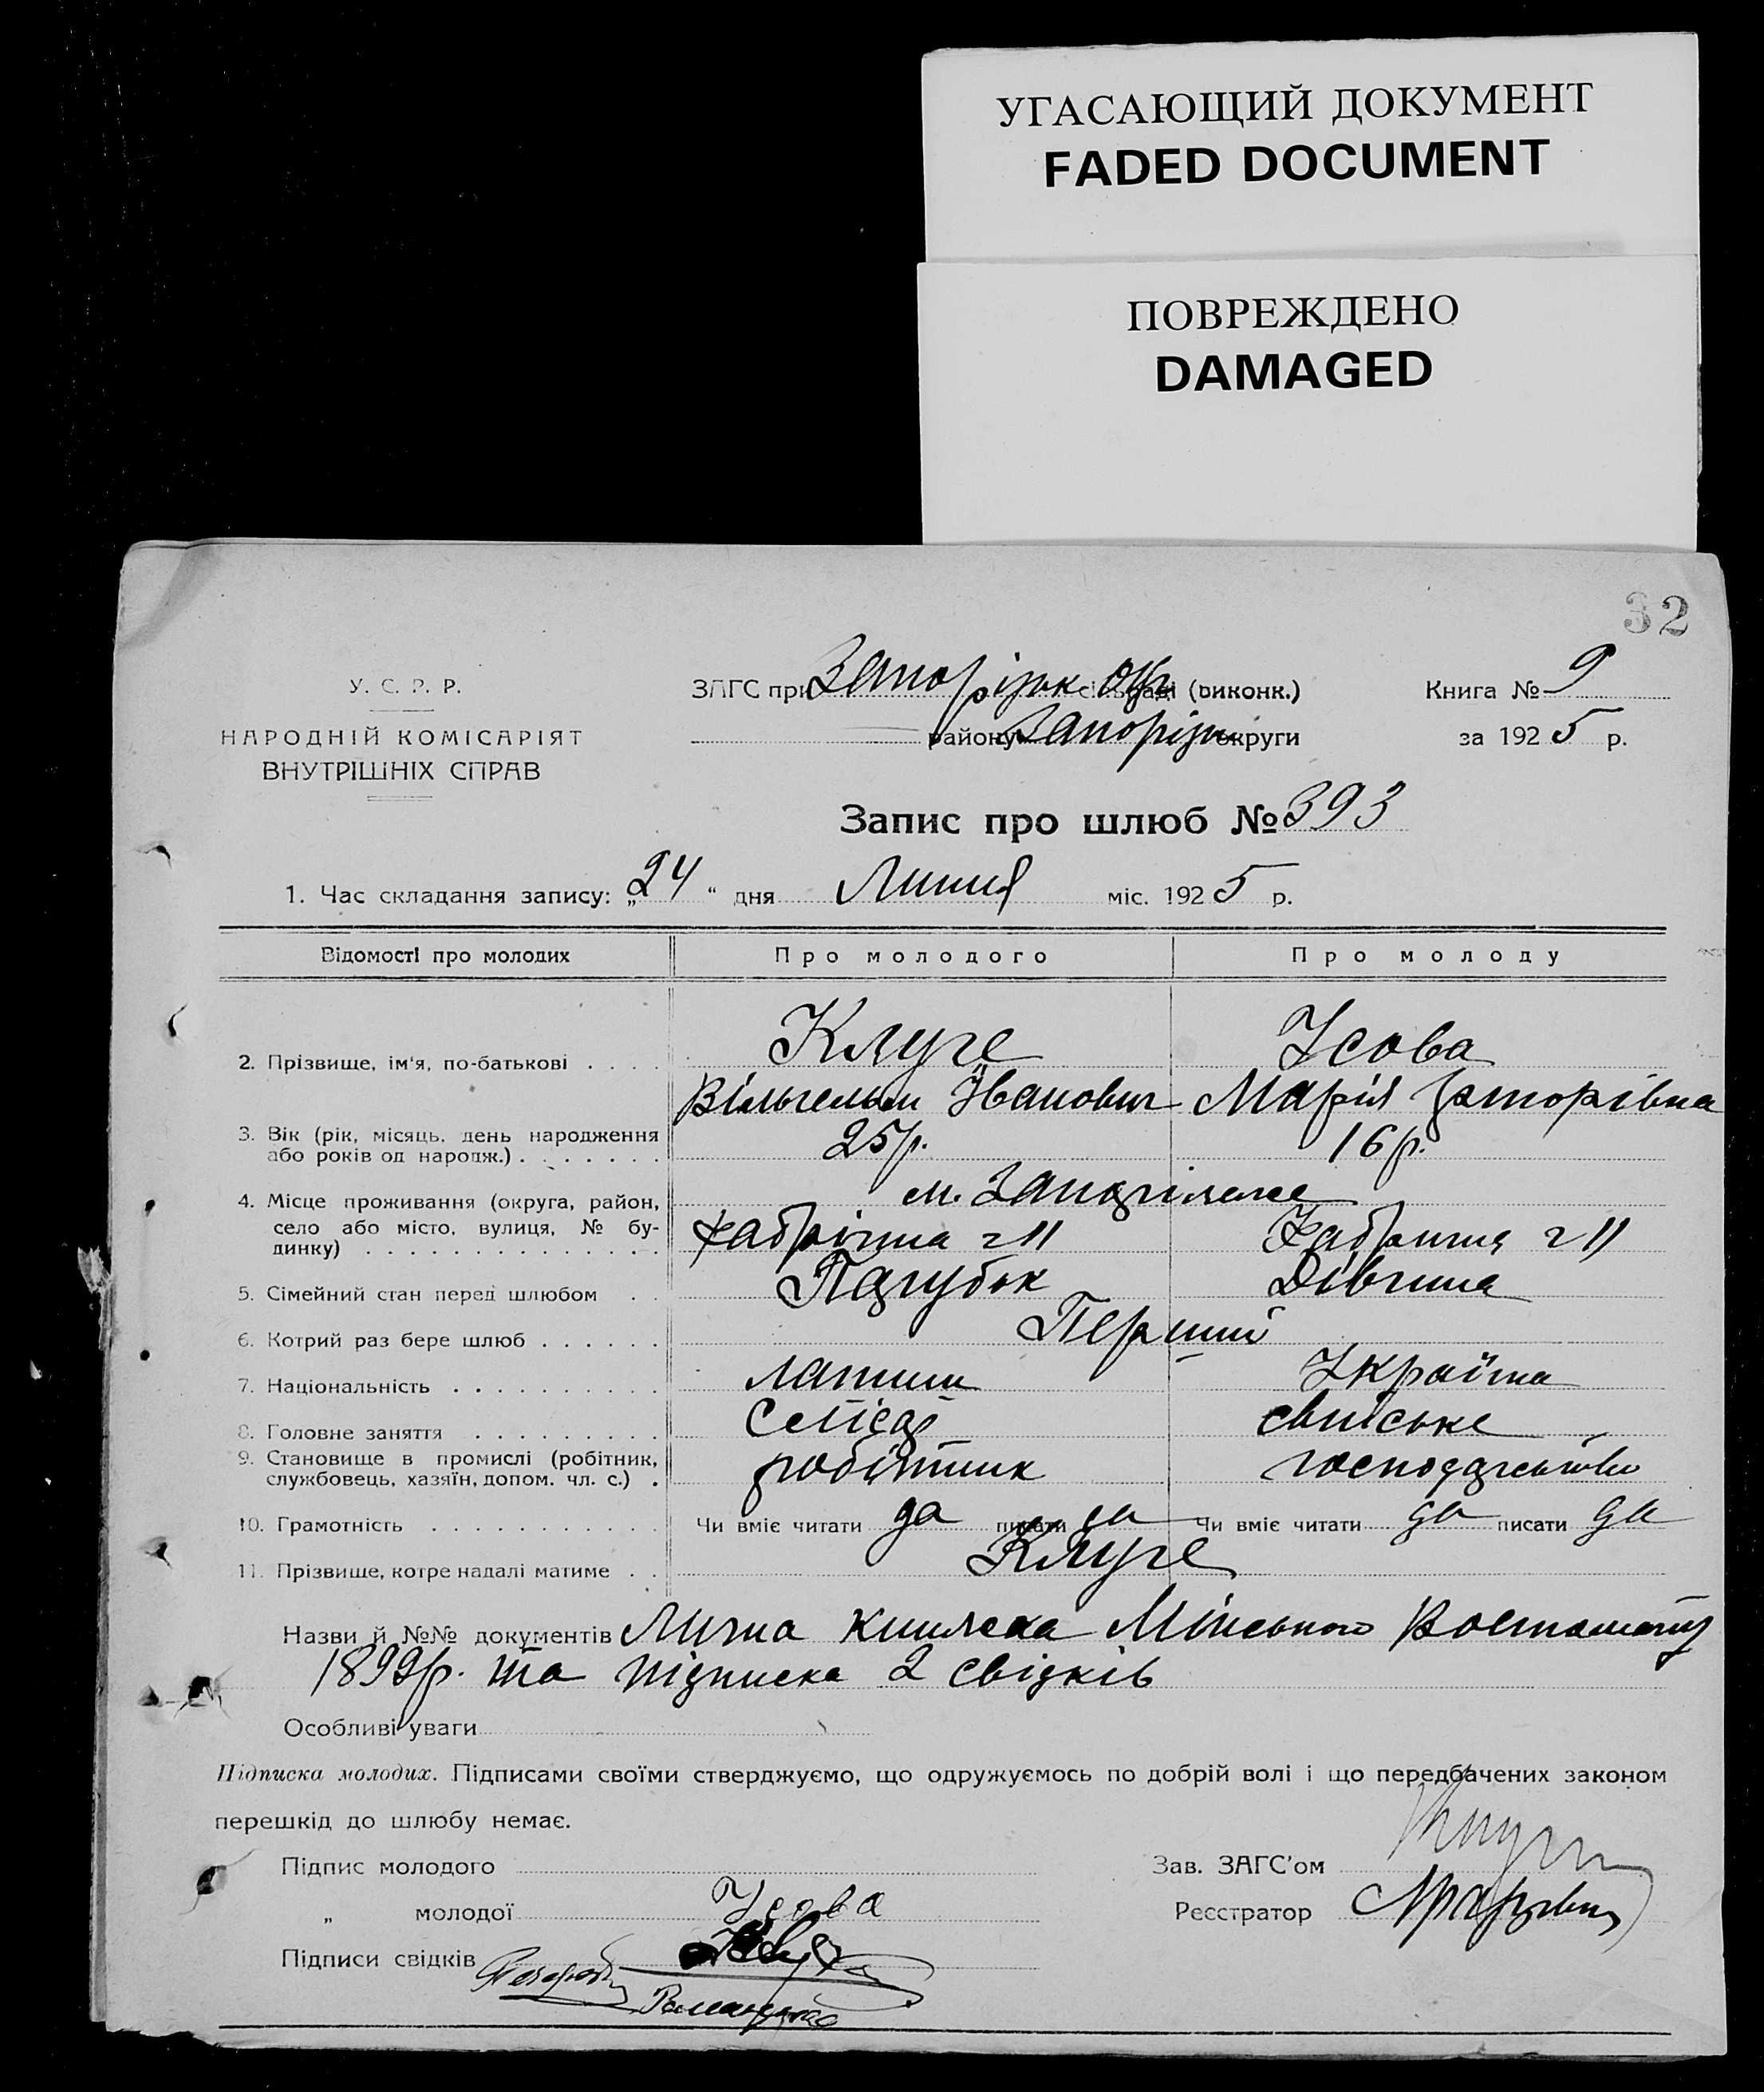 УГАСАЮЩИЙ ДОКУМЕНТ
FADED DOCUMENT
ПОВРЕЖДЕНО
DAMAGED
32
У. С. Р. Р.
НАРОДНІЙ КОМІСАРІЯТ
ВНУТРІШНІХ СПРАВ
ЗАГС при Запоріжок (виконк.)
району Запоріж округи
Книга № 9
за 1925 р.
Запис про шлюб № 393
1. Час складання запису: „24“ дня Липня міс. 1925 р.
Відомості про молодих Про молодого Про молоду
2. Прізвище, ім'я, по-батькові Клуге Усова
Вільгельм Іванович Марія
3. Вік (рік, місяць, день народження 25р. 16р.
або років од народж.)
4. Місце проживання (округа, район, м. Запоріжже
село або місто, вулиця, № бу- Фабрична 211 Фабрична 211
динку)
5. Сімейний стан перед шлюбом Парубок Дівчина
6. Котрий раз бере шлюб Перший
7. Національність латиш Україна
8. Головне заняття сільське
9. Становище в промислі (робітник, робітник господарство
службовець, хазяїн, допом. чл. с.)
10. Грамотність Чи вміє читати да писати да Чи вміє читати да писати да
11. Прізвище, котре надалі матиме Клуге
Назви й №№ документів Лична книжка Мінського
1899р. та підписка 2 свідків
Особливі уваги
Підписка молодих. Підписами своїми стверджуємо, що одружуємось по добрій волі і що передбачених законом
перешкід до шлюбу немає.
Підпис молодого
Зав. ЗАГС'ом
„ молодої Усова
Реєстратор
Підписи свідків